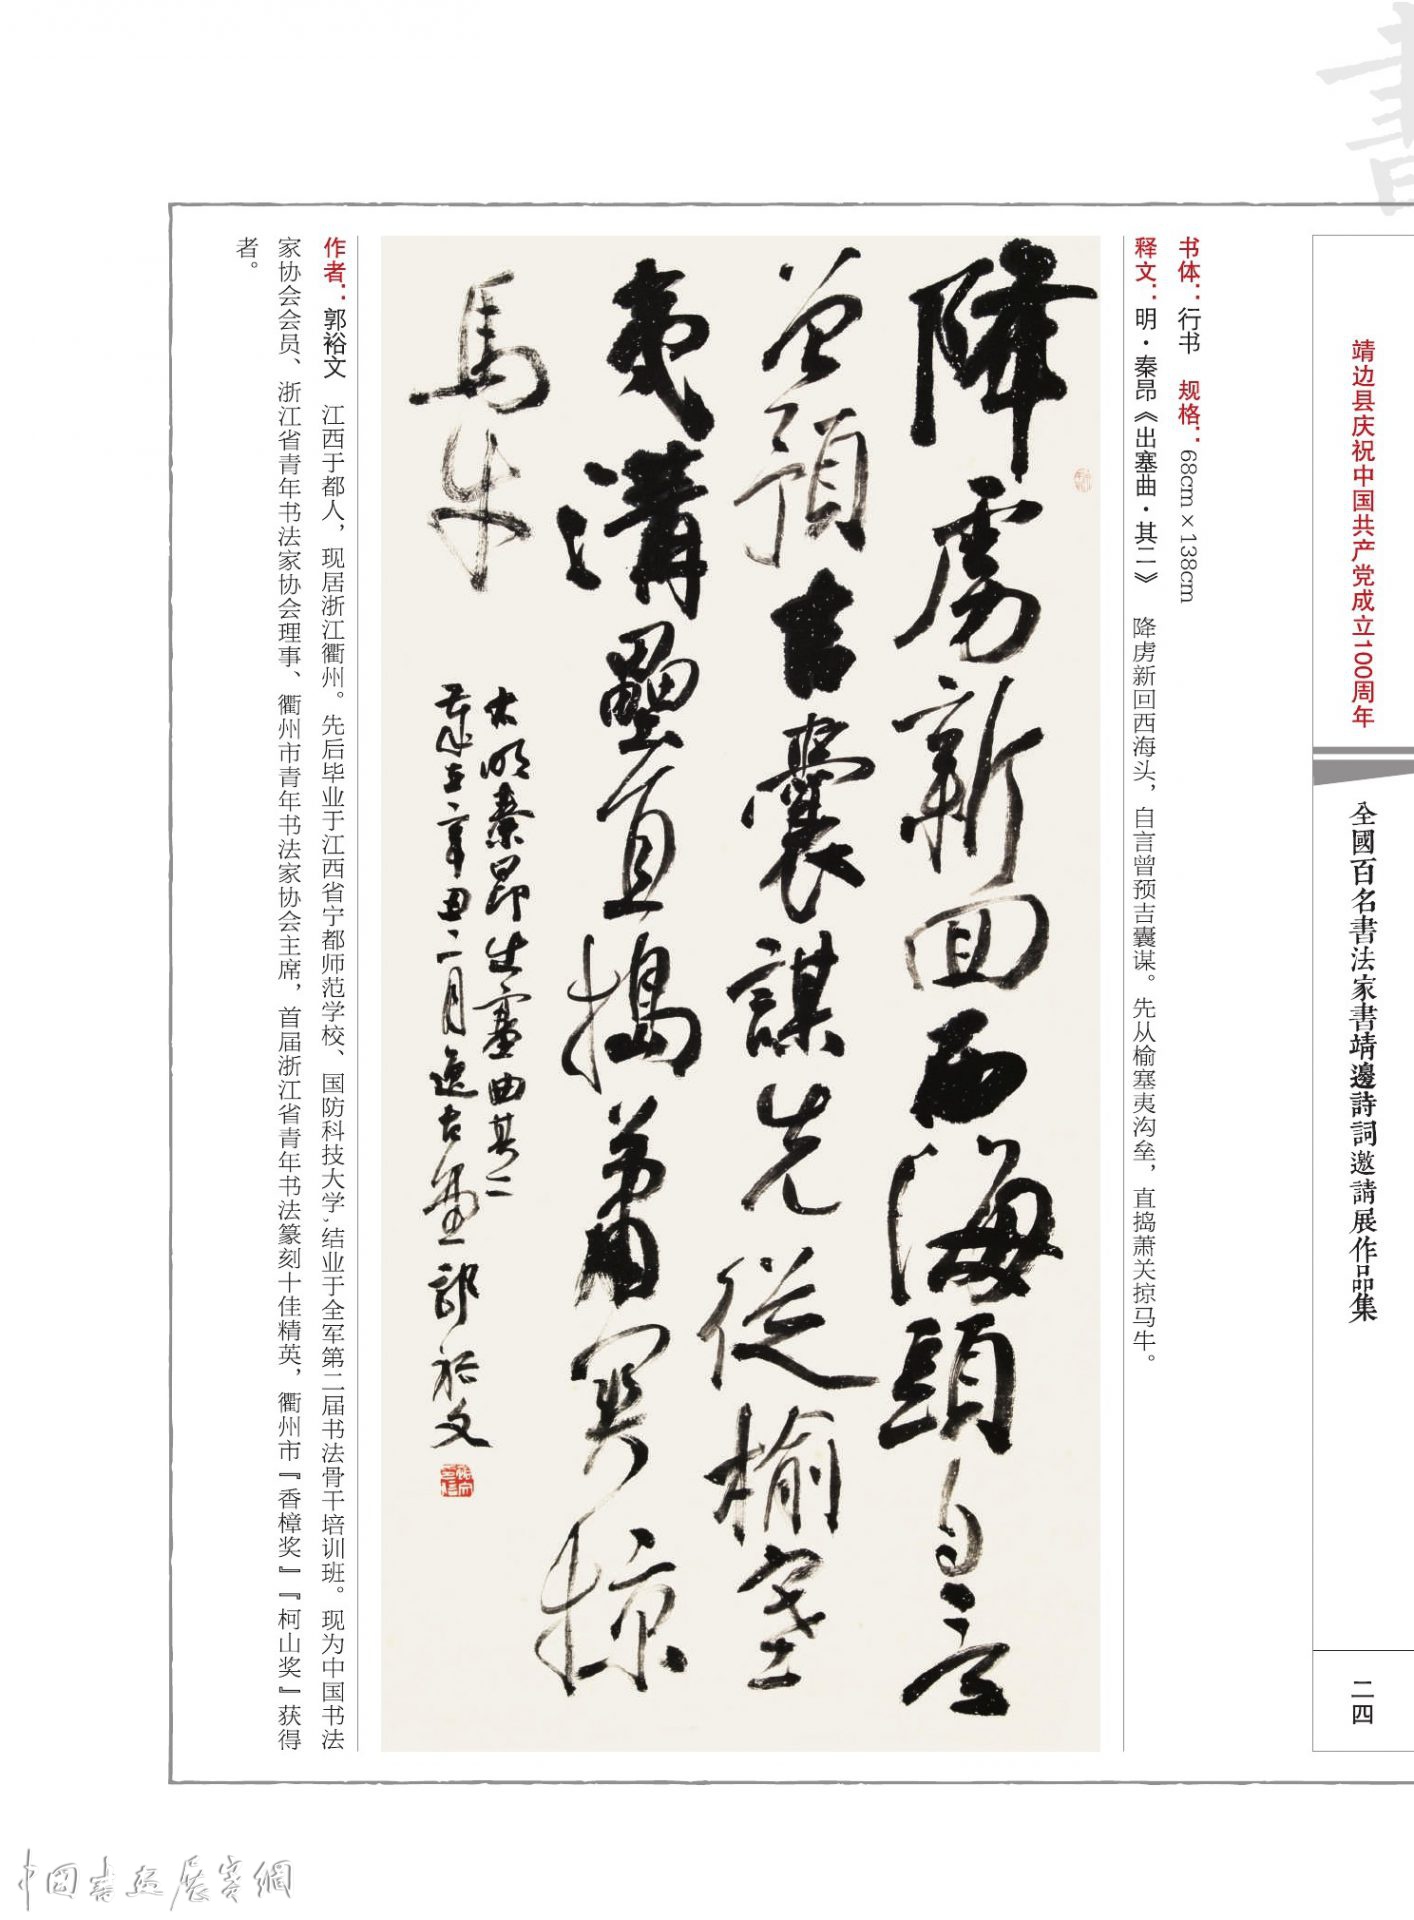 書
靖边县庆祝中国共产党成立100周年
全國百名書法家書靖邊詩詞邀請展作品集
二四
书体：行书 规格：68cm×138cm
释文：明·秦昂《出塞曲·其二》 降虏新回西海头，自言曾预吉囊谋。先从榆塞夷沟垒，直捣萧关掠马牛。
降虜新回西海頭自言
曾預吉囊謀先從榆塞
夷溝壘直搗蕭関掠
馬牛
大明秦昂出塞曲其二
歲在辛丑二月逸古畫郭裕文
作者：郭裕文 江西于都人，现居浙江衢州。先后毕业于江西省宁都师范学校、国防科技大学，结业于全军第二届书法骨干培训班。现为中国书法
家协会会员、浙江省青年书法家协会理事、衢州市青年书法家协会主席，首届浙江省青年书法篆刻十佳精英，衢州市『香樟奖』『柯山奖』获得
者。
中國書畫展賽網